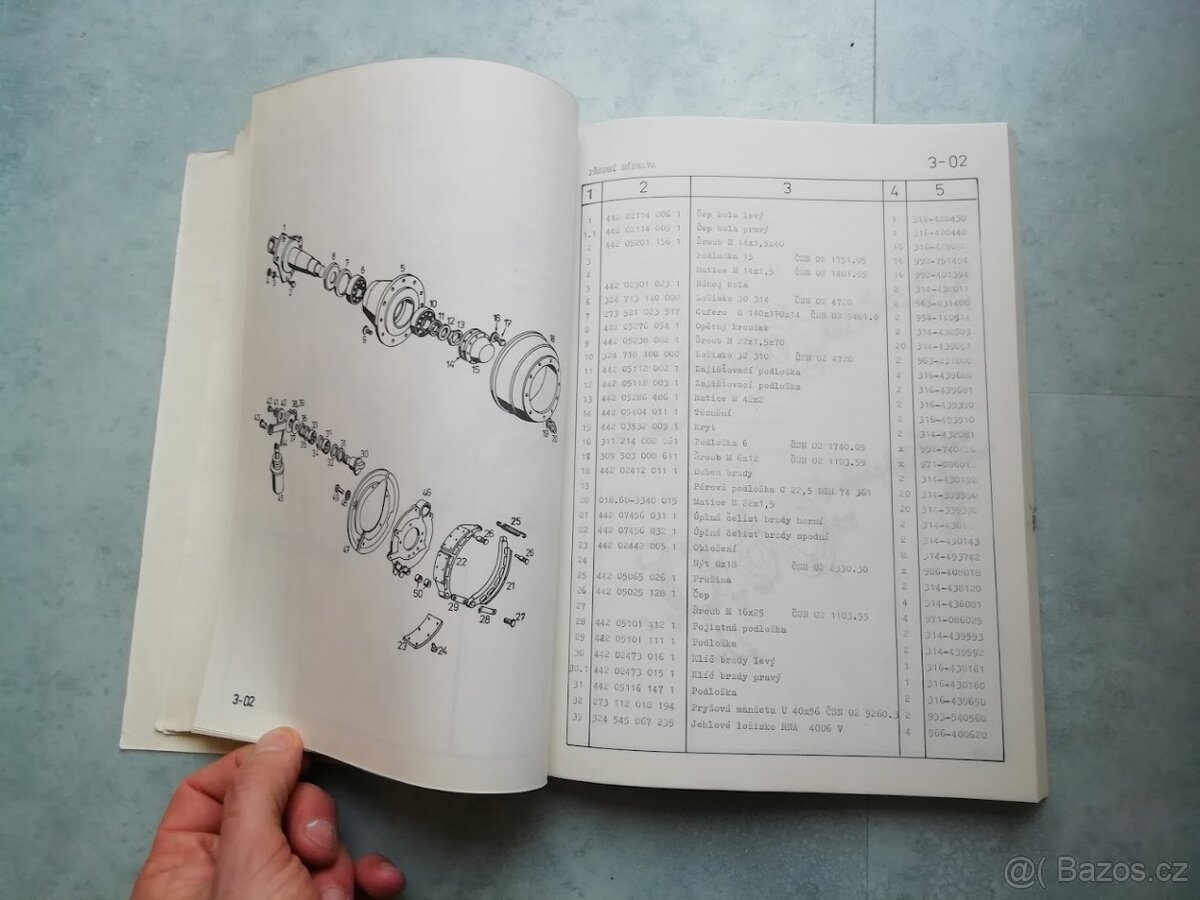 3-02
PŘEDNÍ NÁPRAVA 3-02
1 2 3 4 5
1 442 02114 006 1 Čep kola levý 1 316-420430
1.1 442 02114 005 1 Čep kola pravý 1 316-420440
2 442 05201 156 1 Šroub M 14x1,5x60 16
3 Podložka 15 ČSN 02 1751.05 16 992-751494
4 Matice M 14x1,5 ČSN 02 1401.55 16 992-401394
5 442 02301 023 1 Náboj kola 2 314-430011
6 324 713 140 000 Ložisko 30 314 ČSN 02 4720 2 963-031400
7 273 521 023 517 Gufero G 140x170x14 ČSN 02 9401.0 2 954-140514
8 442 05076 054 1 Opěrný kroužek 2 314-438503
9 442 05238 082 1 Šroub M 22x1,5x70 20 314-439051
10 324 718 180 000 Ložisko 32 310 ČSN 02 4720 2 963-231000
11 442 05112 002 1 Zajišťovací podložka 2 316-439680
12 442 05112 003 1 Zajišťovací podložka 2 316-439681
13 442 05286 486 1 Matice M 42x2 2 316-439390
14 442 05404 011 1 Těsnění 2 316-493910
15 442 03532 009 1 Kryt 2 314-432081
16 311 214 000 061 Podložka 6 ČSN 02 1740.05 x
17 309 503 000 611 Šroub M 6x12 ČSN 02 1103.55 x
18 442 02412 011 1 Buben brzdy 2 314-430192
19 Pérová podložka C 22,5 DIN 74 361 20 314-339590
20 018.60-3340 015 Matice M 22x1,5 20 314-339390
21 442 07456 031 1 Úplná čelist brzdy horní 2
22 442 07456 032 1 Úplná čelist brzdy spodní 2 314-430143
23 442 02442 005 1 Obložení 8 314-493742
24 Nýt 8x18 ČSN 02 2330.30 x 986-408018
25 442 05065 026 1 Pružina 2 314-438120
26 442 05025 128 1 Čep 4 314-436081
27 Šroub M 16x25 ČSN 02 1103.55 4 971-086025
28 442 05101 112 1 Pojistná podložka 2 314-439593
29 442 05101 111 1 Podložka 2 314-439592
30 442 02473 016 1 Klíč brzdy levý 1 316-430161
30.1 442 02473 015 1 Klíč brzdy pravý 1 316-430160
31 442 05116 147 1 Podložka 2 316-439650
32 273 112 010 194 Pryžová manžeta U 40x56 ČSN 02 9260.3 2 933-540560
33 324 545 067 235 Jehlové ložisko RNA 4006 V 4 966-400620
@( Bazos.cz